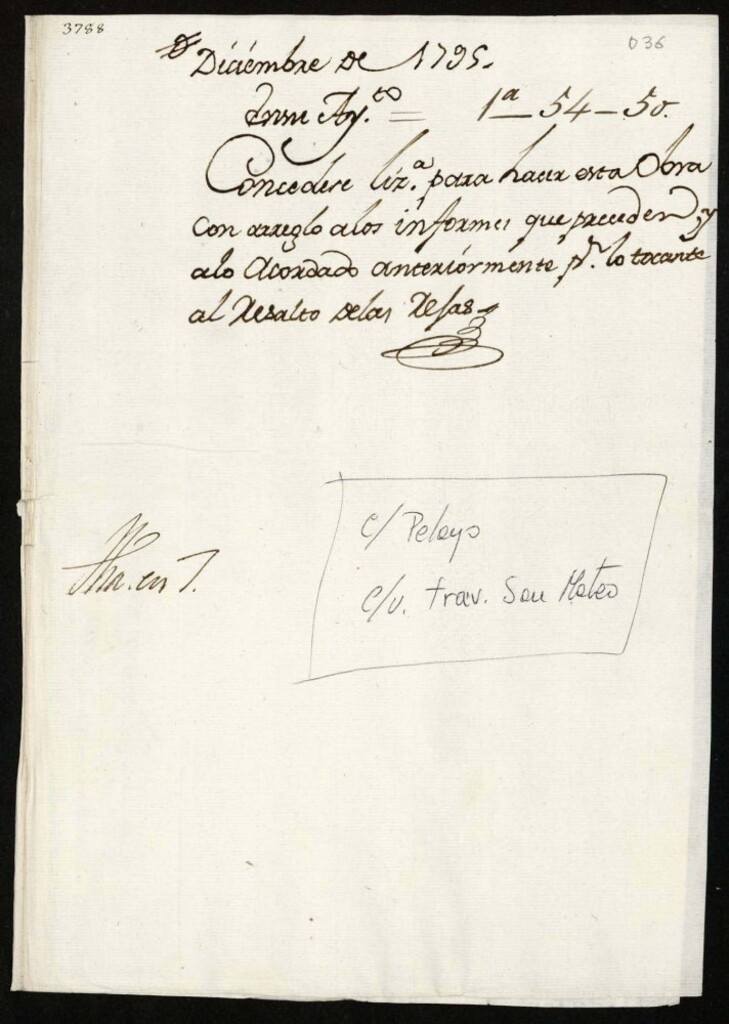 3788
036
Diciembre de 1795.
en ne Ay.to = 1a 54-50.
Concedese liz.a para hacer esta Obra
con arreglo alos informes que preceden, y
alo Acordado anteriormente p.r lo tocante
al Resalto delas Rejas
c/ Pelayo
fha. en 7.
c/v. trav. San Mateo